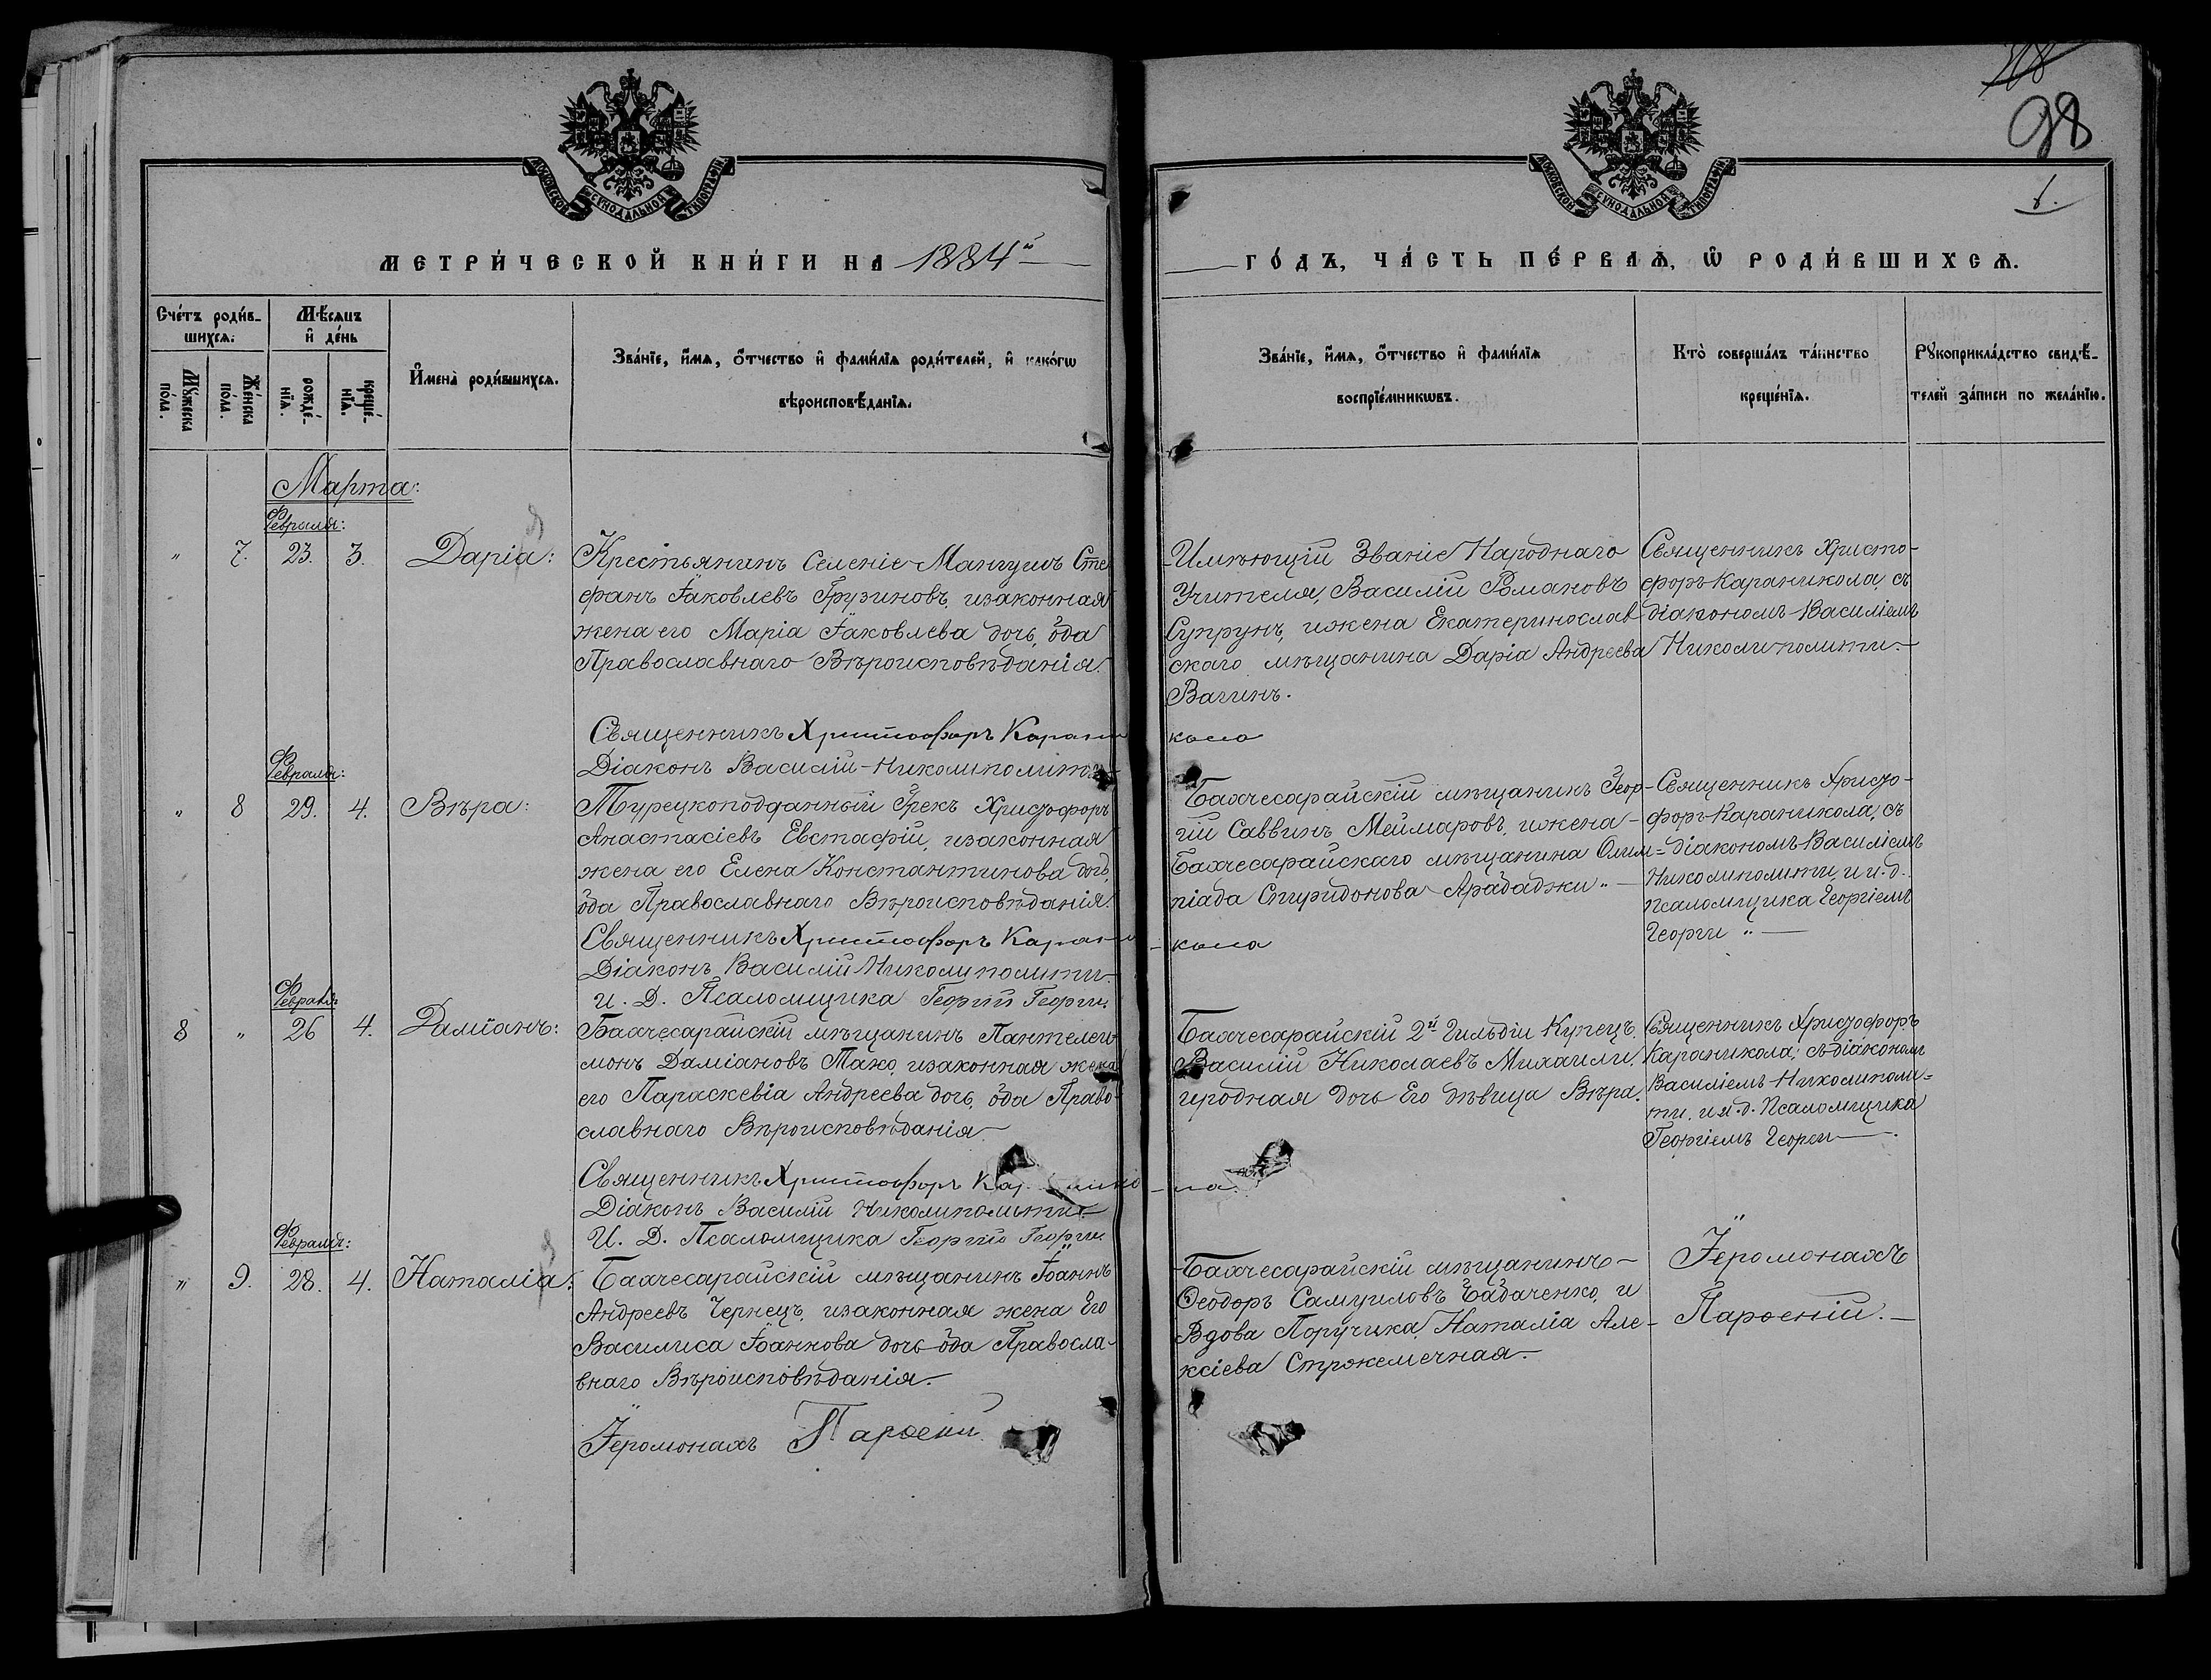 318
98
6.
МОСКОВСКОЙ СѴНОДАЛЬНОЙ ТИПОГРАФІИ
МОСКОВСКОЙ СѴНОДАЛЬНОЙ ТИПОГРАФІИ
МЕТРИ́ЧЕСКОЙ КНИ́ГИ НА 1884й
ГО́ДЪ, ЧА́СТЬ ПЕ́РВАѦ, Ѡ РОДИ́ВШИХСѦ.
Сче́тъ роди́в-
шихсѧ.
Мꙋ́жеска
по́ла.
Же́нска
по́ла.
Мѣ́сѧцъ
и҆ де́нь
рожде́-
нїѧ.
креще́-
нїѧ.
И҆мена̀ роди́вшихсѧ.
Зва́нїе, и҆́мѧ, ѻ҆́тчество и҆ фами́лїѧ роди́телей, и҆ како́гѡ
вѣроисповѣ́данїѧ.
Зва́нїе, и҆́мѧ, ѻ҆́тчество и҆ фами́лїѧ
воспрїе́мникѡвъ.
Кто̀ соверша́лъ та́инство
креще́нїѧ.
Рꙋкоприкла́дство свидѣ́-
телей за́писи по жела́нїю.
Марта:
Февраля:
" 7. 23. 3. Дарiа:
Крестьянинъ Селенiе Мангушъ Сте
фанъ Iаковлевъ Грузиновъ, изаконная
жена его Марiа Iаковлева дочь, ода
Православнаго Вѣроисповѣданiя.
Имѣющiй Званiе Народнаго
Учителя, Василiй Романовъ
Супрунъ, ижена Екатеринослав
скаго мѣщанина Дарiа Андреева
Вагинъ.
Священникъ Христо-
форъ Караникола, съ
дiакономъ Василiемъ
Николиполити.
Священникъ Христофоръ Карани кола
Дiаконъ Василiй Николиполити
Февраля:
" 8 29. 4. Вѣра:
Турецкоподданный Грекъ Христофоръ
Анастасiевъ Евстафiй, изаконная
жена его Елена Константинова дочь,
ода Православнаго Вѣроисповѣданiя.
Бахчесарайскiй мѣщанинъ Геор-
гiй Саввинъ Меймаровъ, ижена
Бахчесарайскаго мѣщанина Олим=
пiада Спиридонова Арабаджи "
Священникъ Христо-
форъ Караникола, съ
дiакономъ Василiемъ
Николиполити, и и.д.
псаломщика Георгiемъ
Георги "
Священникъ Христофоръ Карани - кола
Дiаконъ Василiй Николиполити
И. Д. Псаломщика Георгiй Георги
Февраля
8 " 26 4. Дамiанъ:
Бахчесарайскiй мѣщанинъ Пантелей
монъ Дамiановъ Тахо, изаконная жена
его Параскевiа Андреева дочь, ода Право-
славнаго Вѣроисповѣданiя
Бахчесарайскiй 2й Гильдiи Купецъ
Василiй Николаевъ Михаили,
иродная дочь Его дѣвица Вѣра.
Священникъ Христофоръ
Караникола; съ дiакономъ
Василiемъ Николиполи=
ти. и и.д. Псаломщика
Георгiемъ Георги
Священникъ Христофоръ
Дiаконъ Василiй Николиполити
И. Д. Псаломщика Георгiй Георги
Февраля:
" 9. 28. 4. Наталiа:
Бахчесарайскiй мѣщанинъ Iоаннъ
Андреевъ Чернецъ, изаконная жена Его
Василиса Iоаннова дочь ода Правосла-
внаго Вѣроисповѣданiя.
Бахчесарайскiй мѣщанинъ
Ѳеодоръ Самуиловъ Бабаченко, и
Вдова Поручика Наталiа Але-
ксiева Стржемечная.
Iеромонахъ
Парѳенiй.
Iеромонахъ Парѳенiй